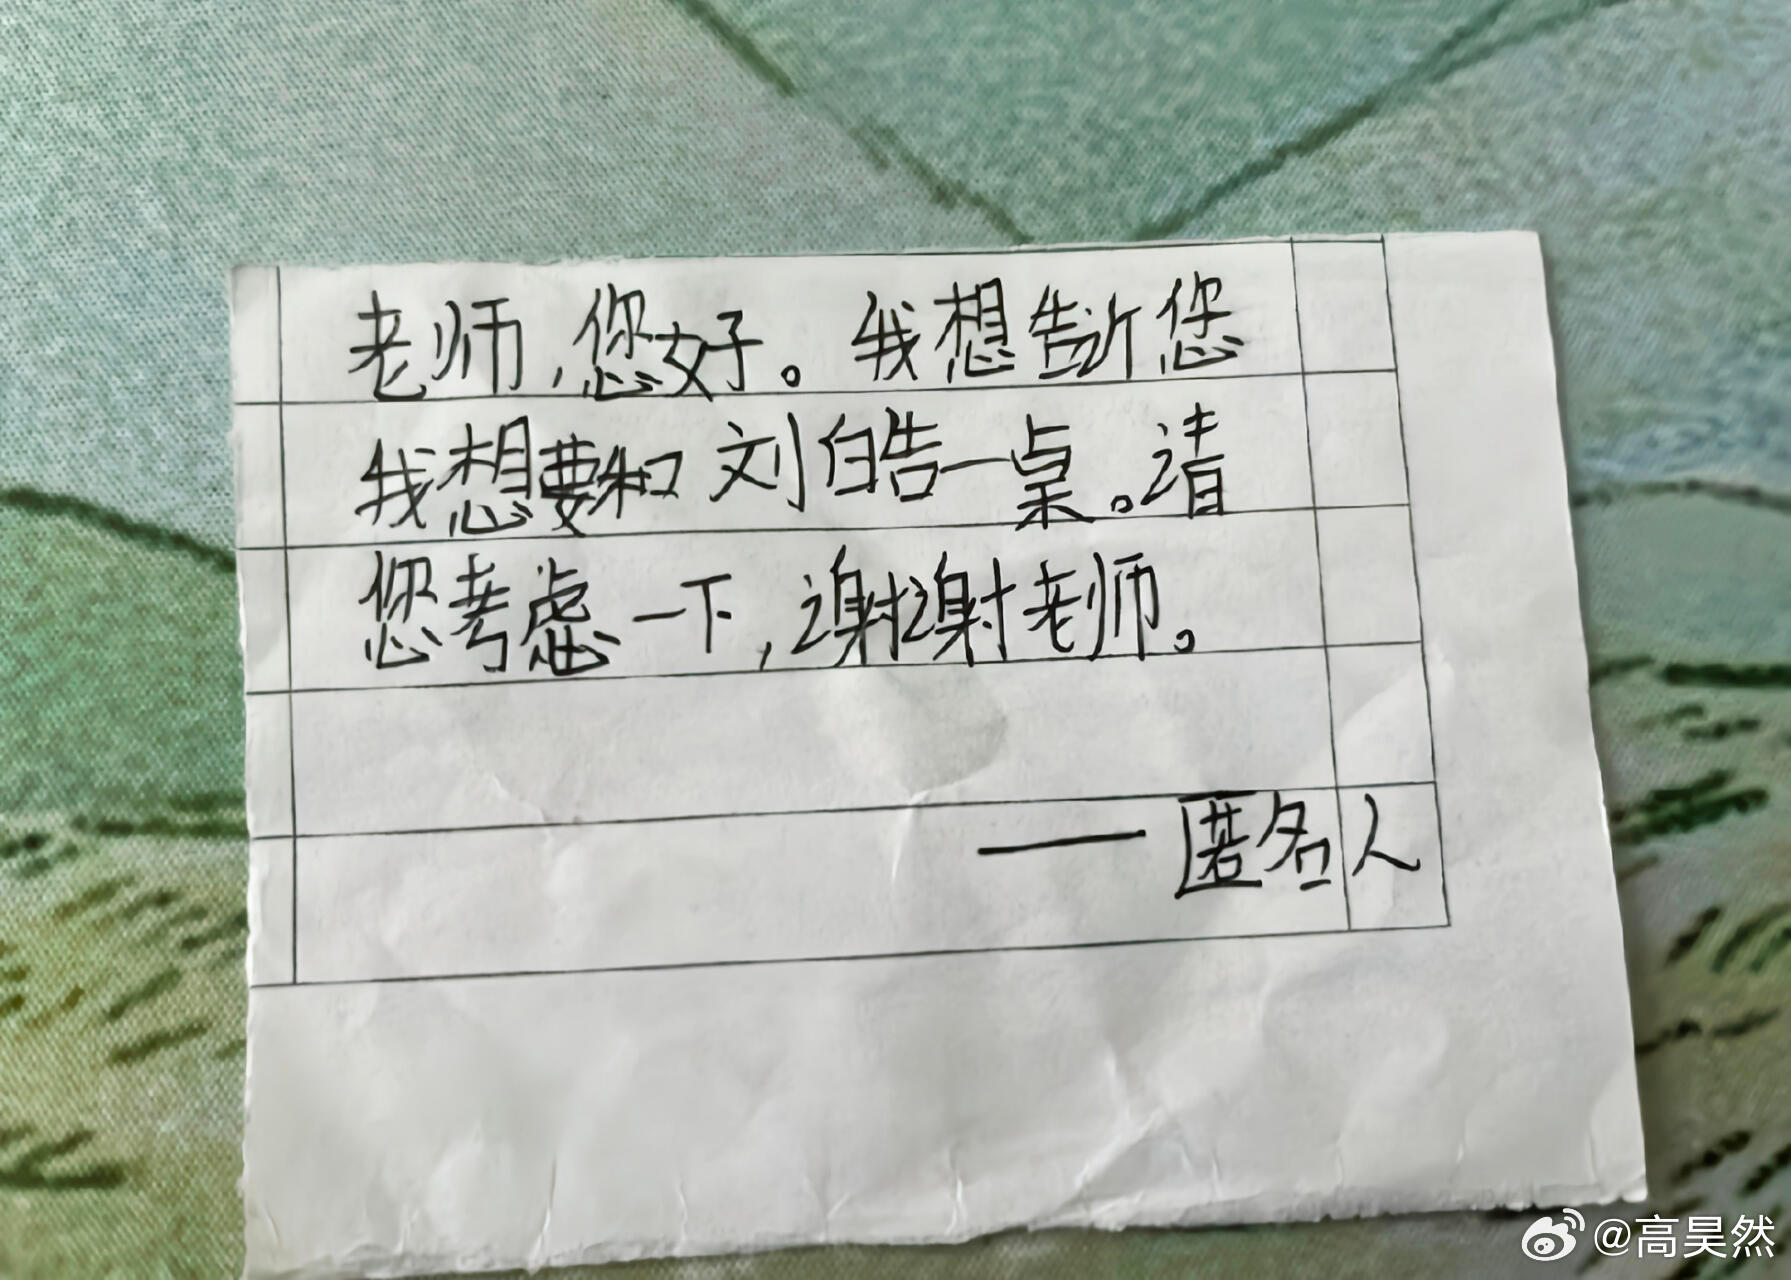 老师,您好。我想告诉您
我想要和刘皓一桌。请
您考虑一下,谢谢老师。
——匿名人
@高昊然